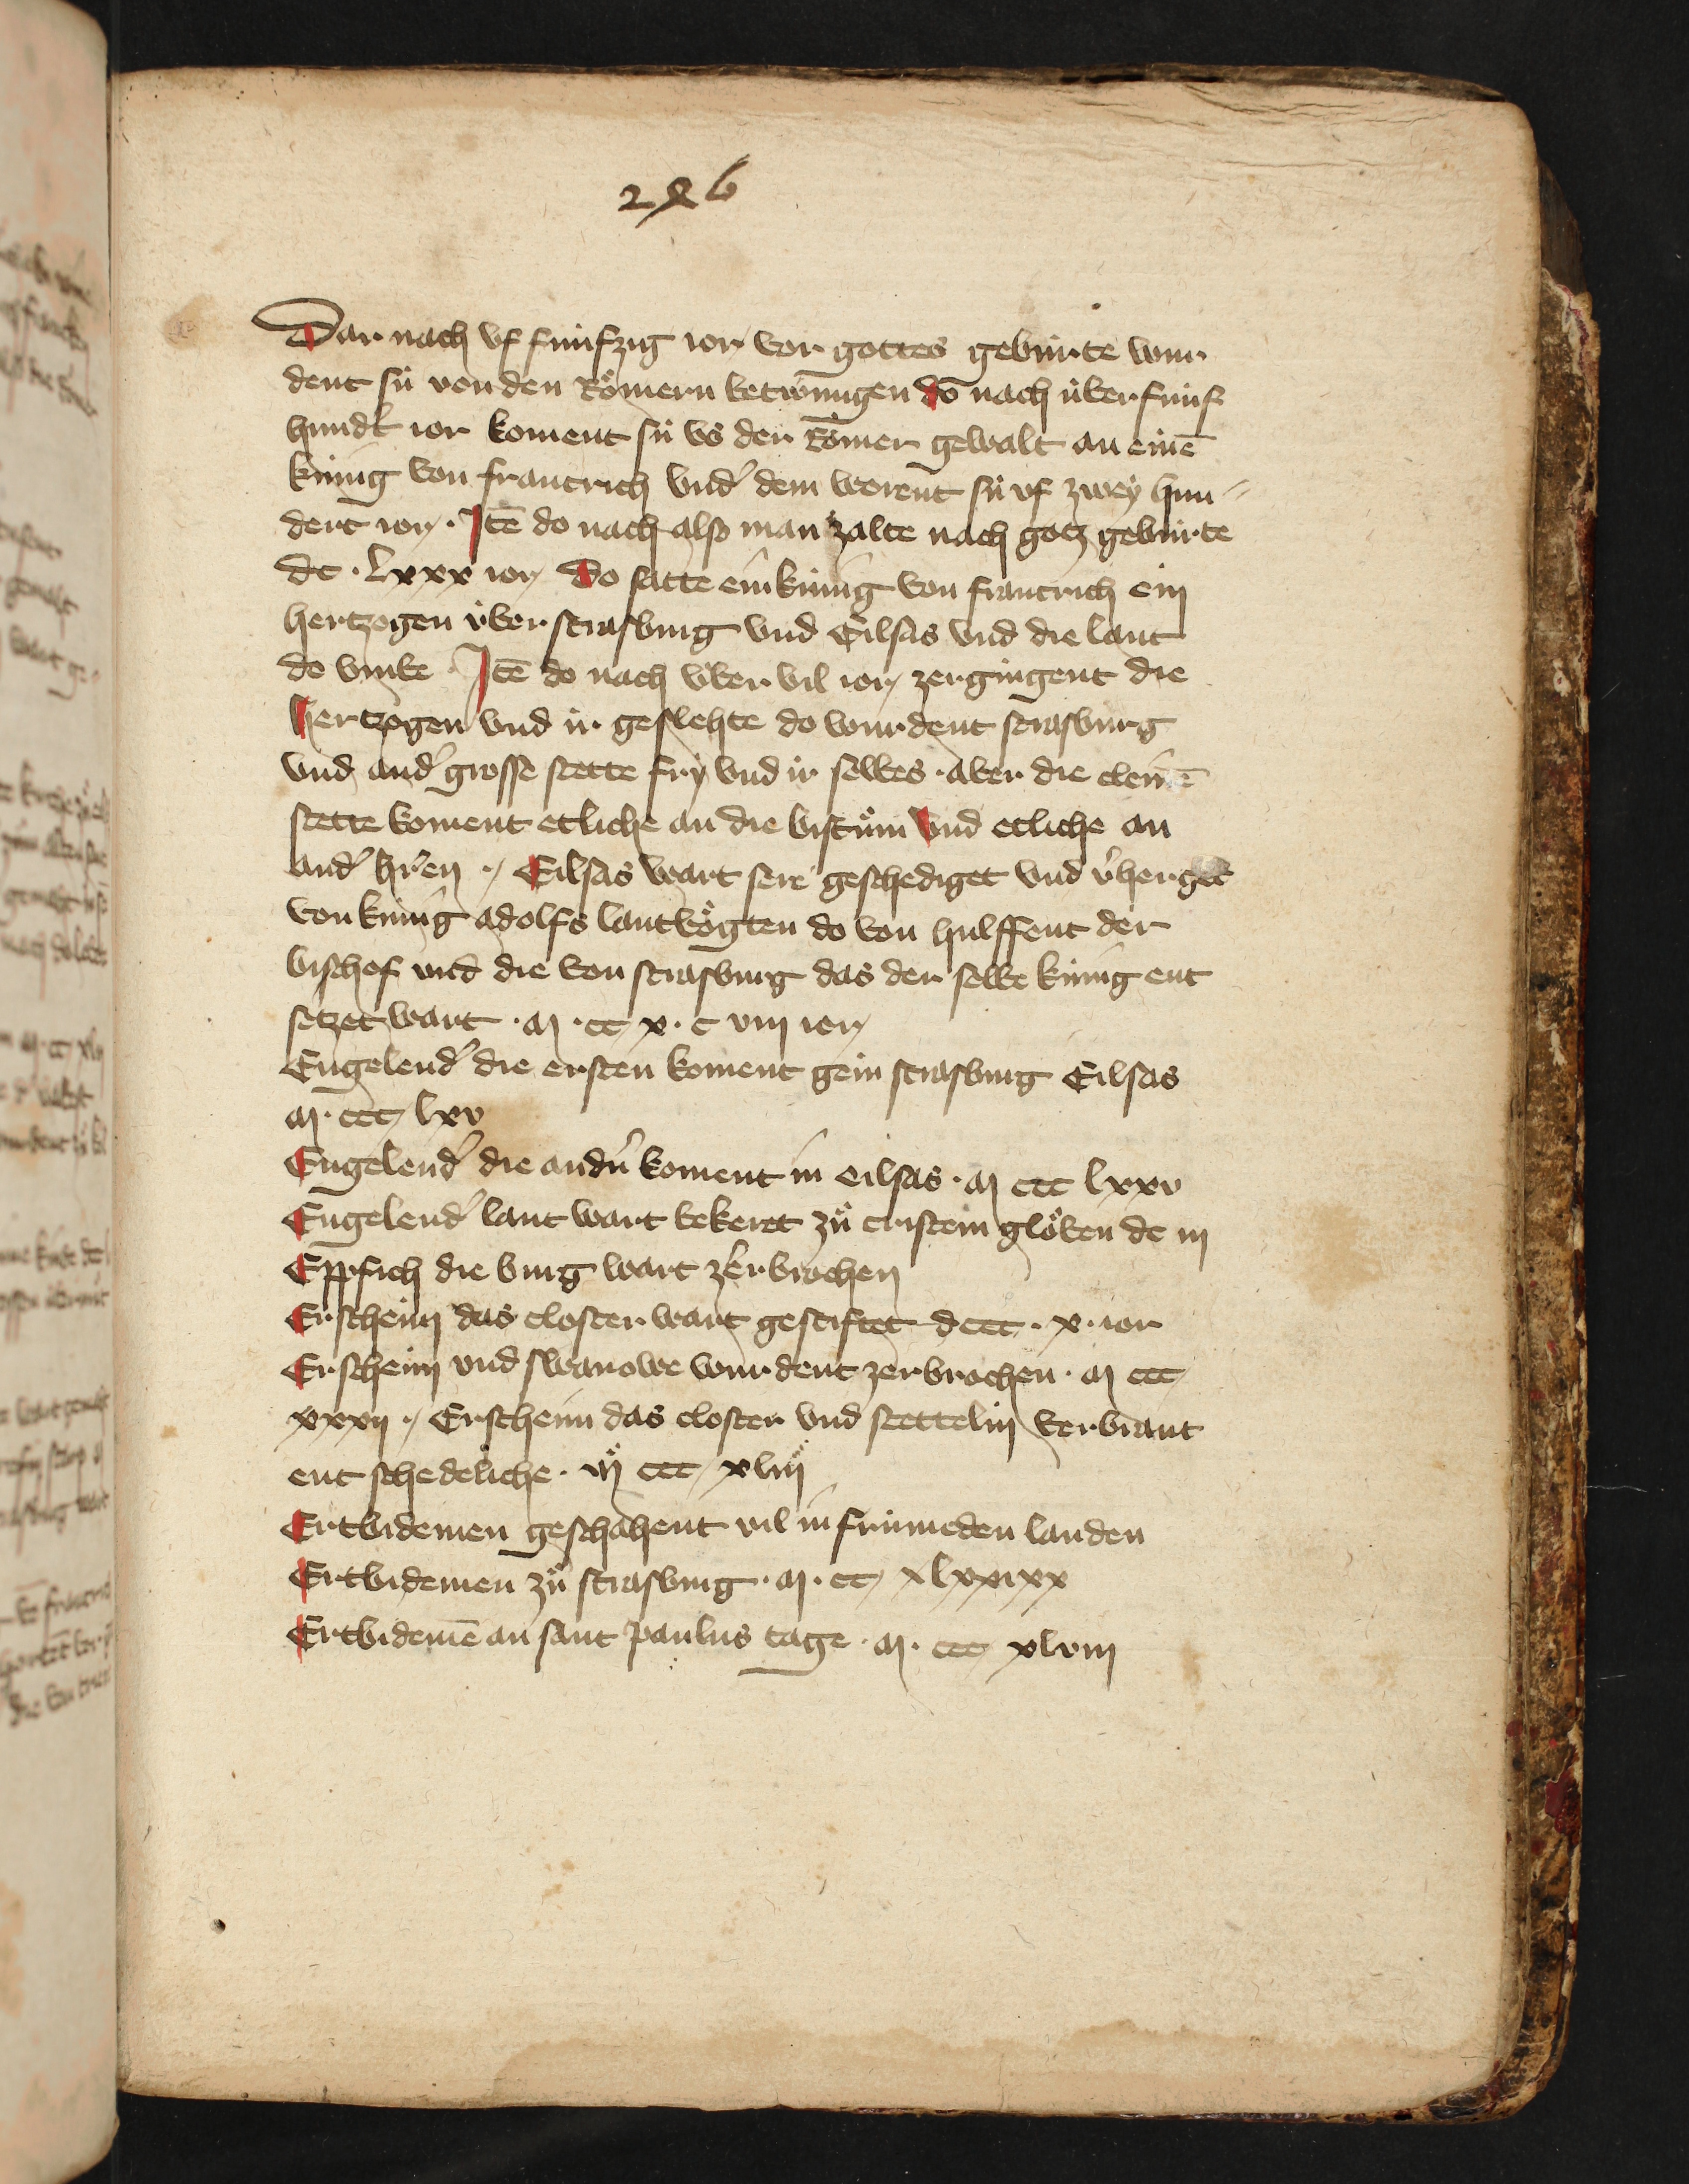 286
Dar nach vf fúnfzig ior vor gottes gebúrte wur
dent sú von den Rőmern betwúngen do nach úber fúnf
hundʾt ior koment sú vs der Rőmer gewalt an einē
kúnig von francrich vndʾ dem worent sú vf zwey hun〃
dert ior · Itē do nach also man zalte nach gotz gebúrte
dc · lxxx ior Do satte ein kúnig von francrich ein
hertzogen úber strasburg vnd Eilsas vnd die lant
do vmbe · Itē do nach úber vil ior zergingent die
hertzogen vnd ir geslehte do wurdent strasburg
vnd andʾ grosse stette fry vnd ir selbes · aber die cleinē
stette koment etliche an die bistům vnd etliche an
andʾ hʾren · Eilsas wart sere geschediget vnd vʾherget
von kúnig adolfs lantvőgten do von hulffent der
bischof vnd die von strasburg das der selbe kúnig ent
setzet wart · m · cc x · c viii ior
Engelendʾ die ersten koment gein strasburg Eilsas
m · ccc lxv
Engelendʾ die andʾn koment in eilsas · m ccc lxxv
Engelendʾ lant wart bekeret zů cristein glőben dc iii
Eppfich die burg wart zerbrochen
Erscheim das closter wart gestiftet dccc · x · ior
Erscheim vnd swanowe wurdent zerbrochen · m ccc
xxxii · Erscheim das closter vnd stettelin verbrant
ent schedeliche · m ccc xliii
Ertbidemen geschahent vil in frúmeden landen
Ertbidemen zů strasburg · m · cc xlxxixx
Ertbidemē an sant paulus tage · m · ccc xlviii